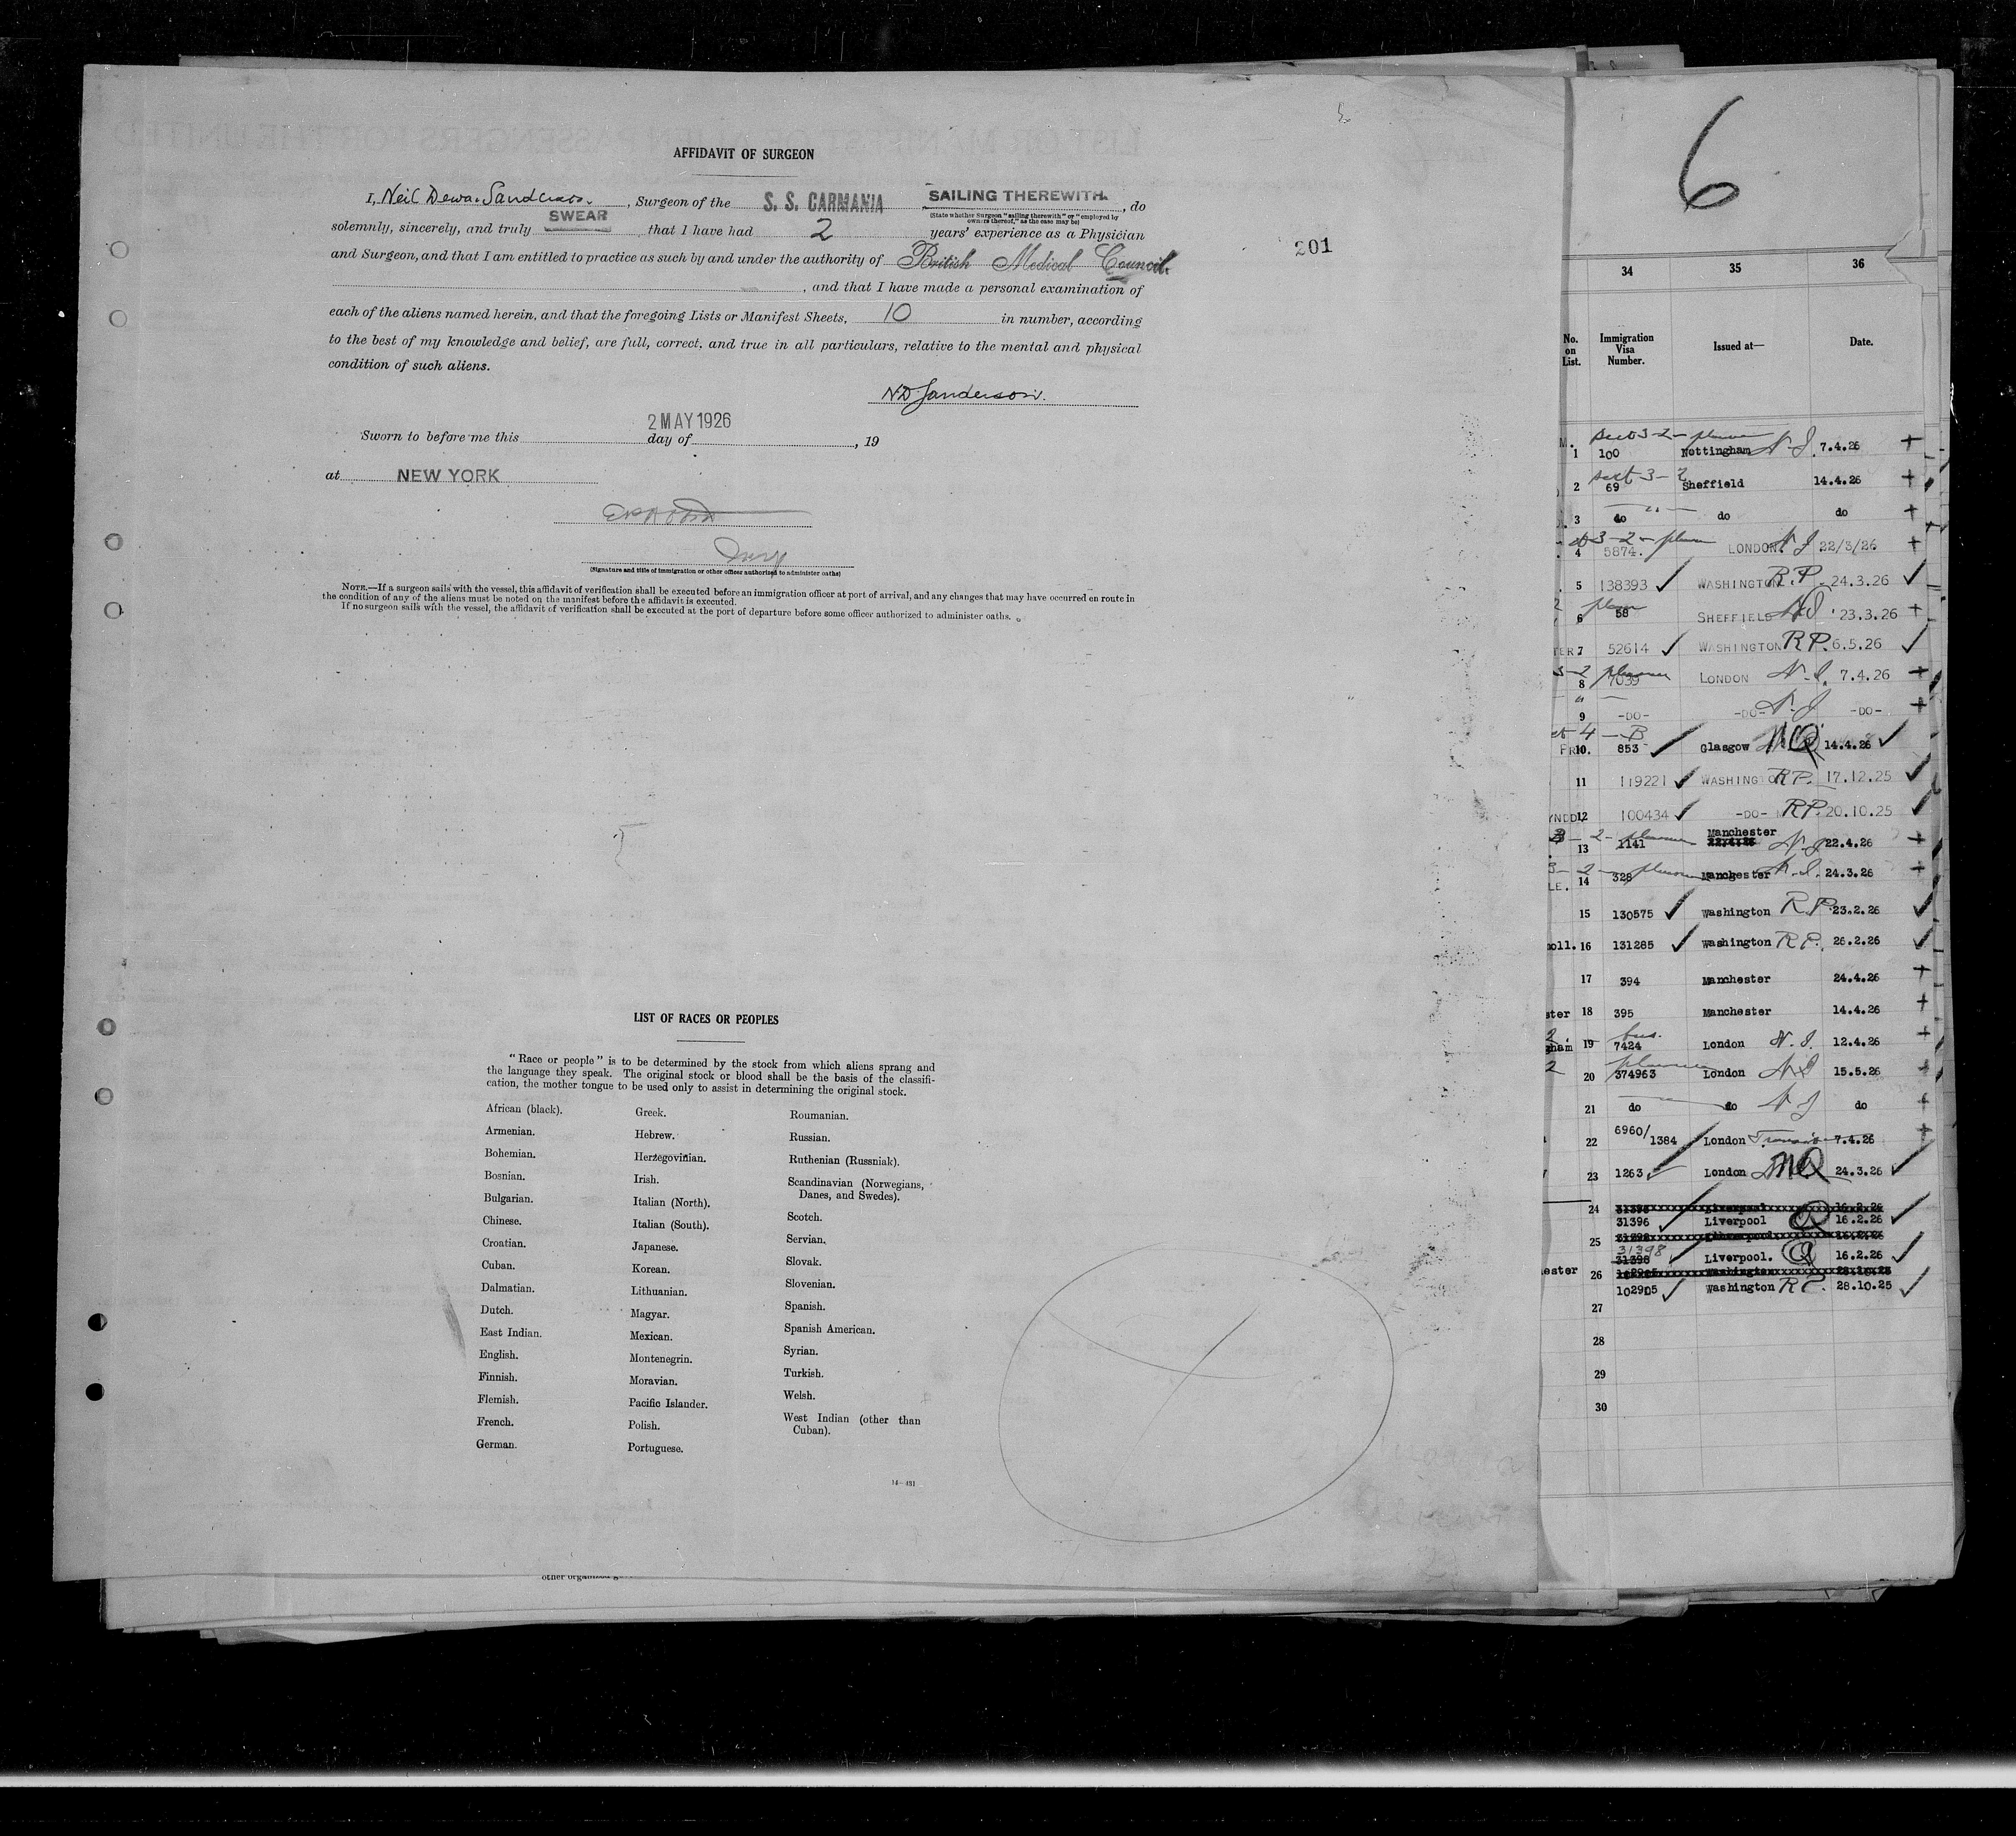 AFFIDAVIT OF SURGEON
I, Neil Dewar Sanderson, Surgeon of the S. S. CARMANIA SAILING THEREWITH., do
(State whether Surgeon "sailing therewith" or "employed by
owners thereof," as the case may be)
solemnly, sincerely, and truly SWEAR that I have had 2 years' experience as a Physician
and Surgeon, and that I am entitled to practice as such by and under the authority of British Medical Council.
, and that I have made a personal examination of
each of the aliens named herein, and that the foregoing Lists or Manifest Sheets, 10 in number, according
to the best of my knowledge and belief, are full, correct, and true in all particulars, relative to the mental and physical
condition of such aliens.
N D Sanderson.
2 MAY 1926
Sworn to before me this day of , 19
at NEW YORK
(Signature and title of immigration or other officer authorized to administer oaths)
NOTE.—If a surgeon sails with the vessel, this affidavit of verification shall be executed before an immigration officer at port of arrival, and any changes that may have occurred en route in
the condition of any of the aliens must be noted on the manifest before the affidavit is executed.
If no surgeon sails with the vessel, the affidavit of verification shall be executed at the port of departure before some officer authorized to administer oaths.
201
LIST OF RACES OR PEOPLES
"Race or people" is to be determined by the stock from which aliens sprang and
the language they speak. The original stock or blood shall be the basis of the classifi-
cation, the mother tongue to be used only to assist in determining the original stock.
African (black).
Armenian.
Bohemian.
Bosnian.
Bulgarian.
Chinese.
Croatian.
Cuban.
Dalmatian.
Dutch.
East Indian.
English.
Finnish.
Flemish.
French.
German.
Greek.
Hebrew.
Herzegovinian.
Irish.
Italian (North).
Italian (South).
Japanese.
Korean.
Lithuanian.
Magyar.
Mexican.
Montenegrin.
Moravian.
Pacific Islander.
Polish.
Portuguese.
Roumanian.
Russian.
Ruthenian (Russniak).
Scandinavian (Norwegians,
Danes, and Swedes).
Scotch.
Servian.
Slovak.
Slovenian.
Spanish.
Spanish American.
Syrian.
Turkish.
Welsh.
West Indian (other than
Cuban).
14—431
6
34 35 36
No. on List. Immigration Visa Number. Issued at— Date.
1 100 Nottingham N.I. 7.4.26 +
2 69 Sheffield 14.4.26 +
3 do do do +
4 5874. LONDON. 22/3/26 +
5 138393 ✓ WASHINGTON R.P. 24.3.26 ✓
6 58 SHEFFIELD 23.3.26 +
7 52614 ✓ WASHINGTON R.P. 6.5.26 ✓
8 7039 LONDON N.I. 7.4.26 +
9 -DO- -DO- -DO- +
10. 853 ✓ Glasgow NQ 14.4.26 ✓
11 119221 ✓ WASHINGTON R.P. 17.12.25 ✓
12 100434 ✓ -DO- R.P. 20.10.25 ✓
13 1141 Manchester 22.4.26 +
14 328 Manchester N.I. 24.3.26 +
15 130575 ✓ Washington R.P. 23.2.26 ✓
16 131285 ✓ Washington R.P. 26.2.26 ✓
17 394 Manchester 24.4.26 +
18 395 Manchester 14.4.26 +
19 7424 London N.I. 12.4.26 +
20 374963 London N.I. 15.5.26 +
21 do do do +
22 6960/1384 London 7.4.26 +
23 1263 London NQ 24.3.26 ✓
24 31396 ✓ Liverpool Q 16.2.26 ✓
25 31398 Liverpool. Q 16.2.26 ✓
26 102905 ✓ Washington R.P. 28.10.25 ✓
27
28
29
30